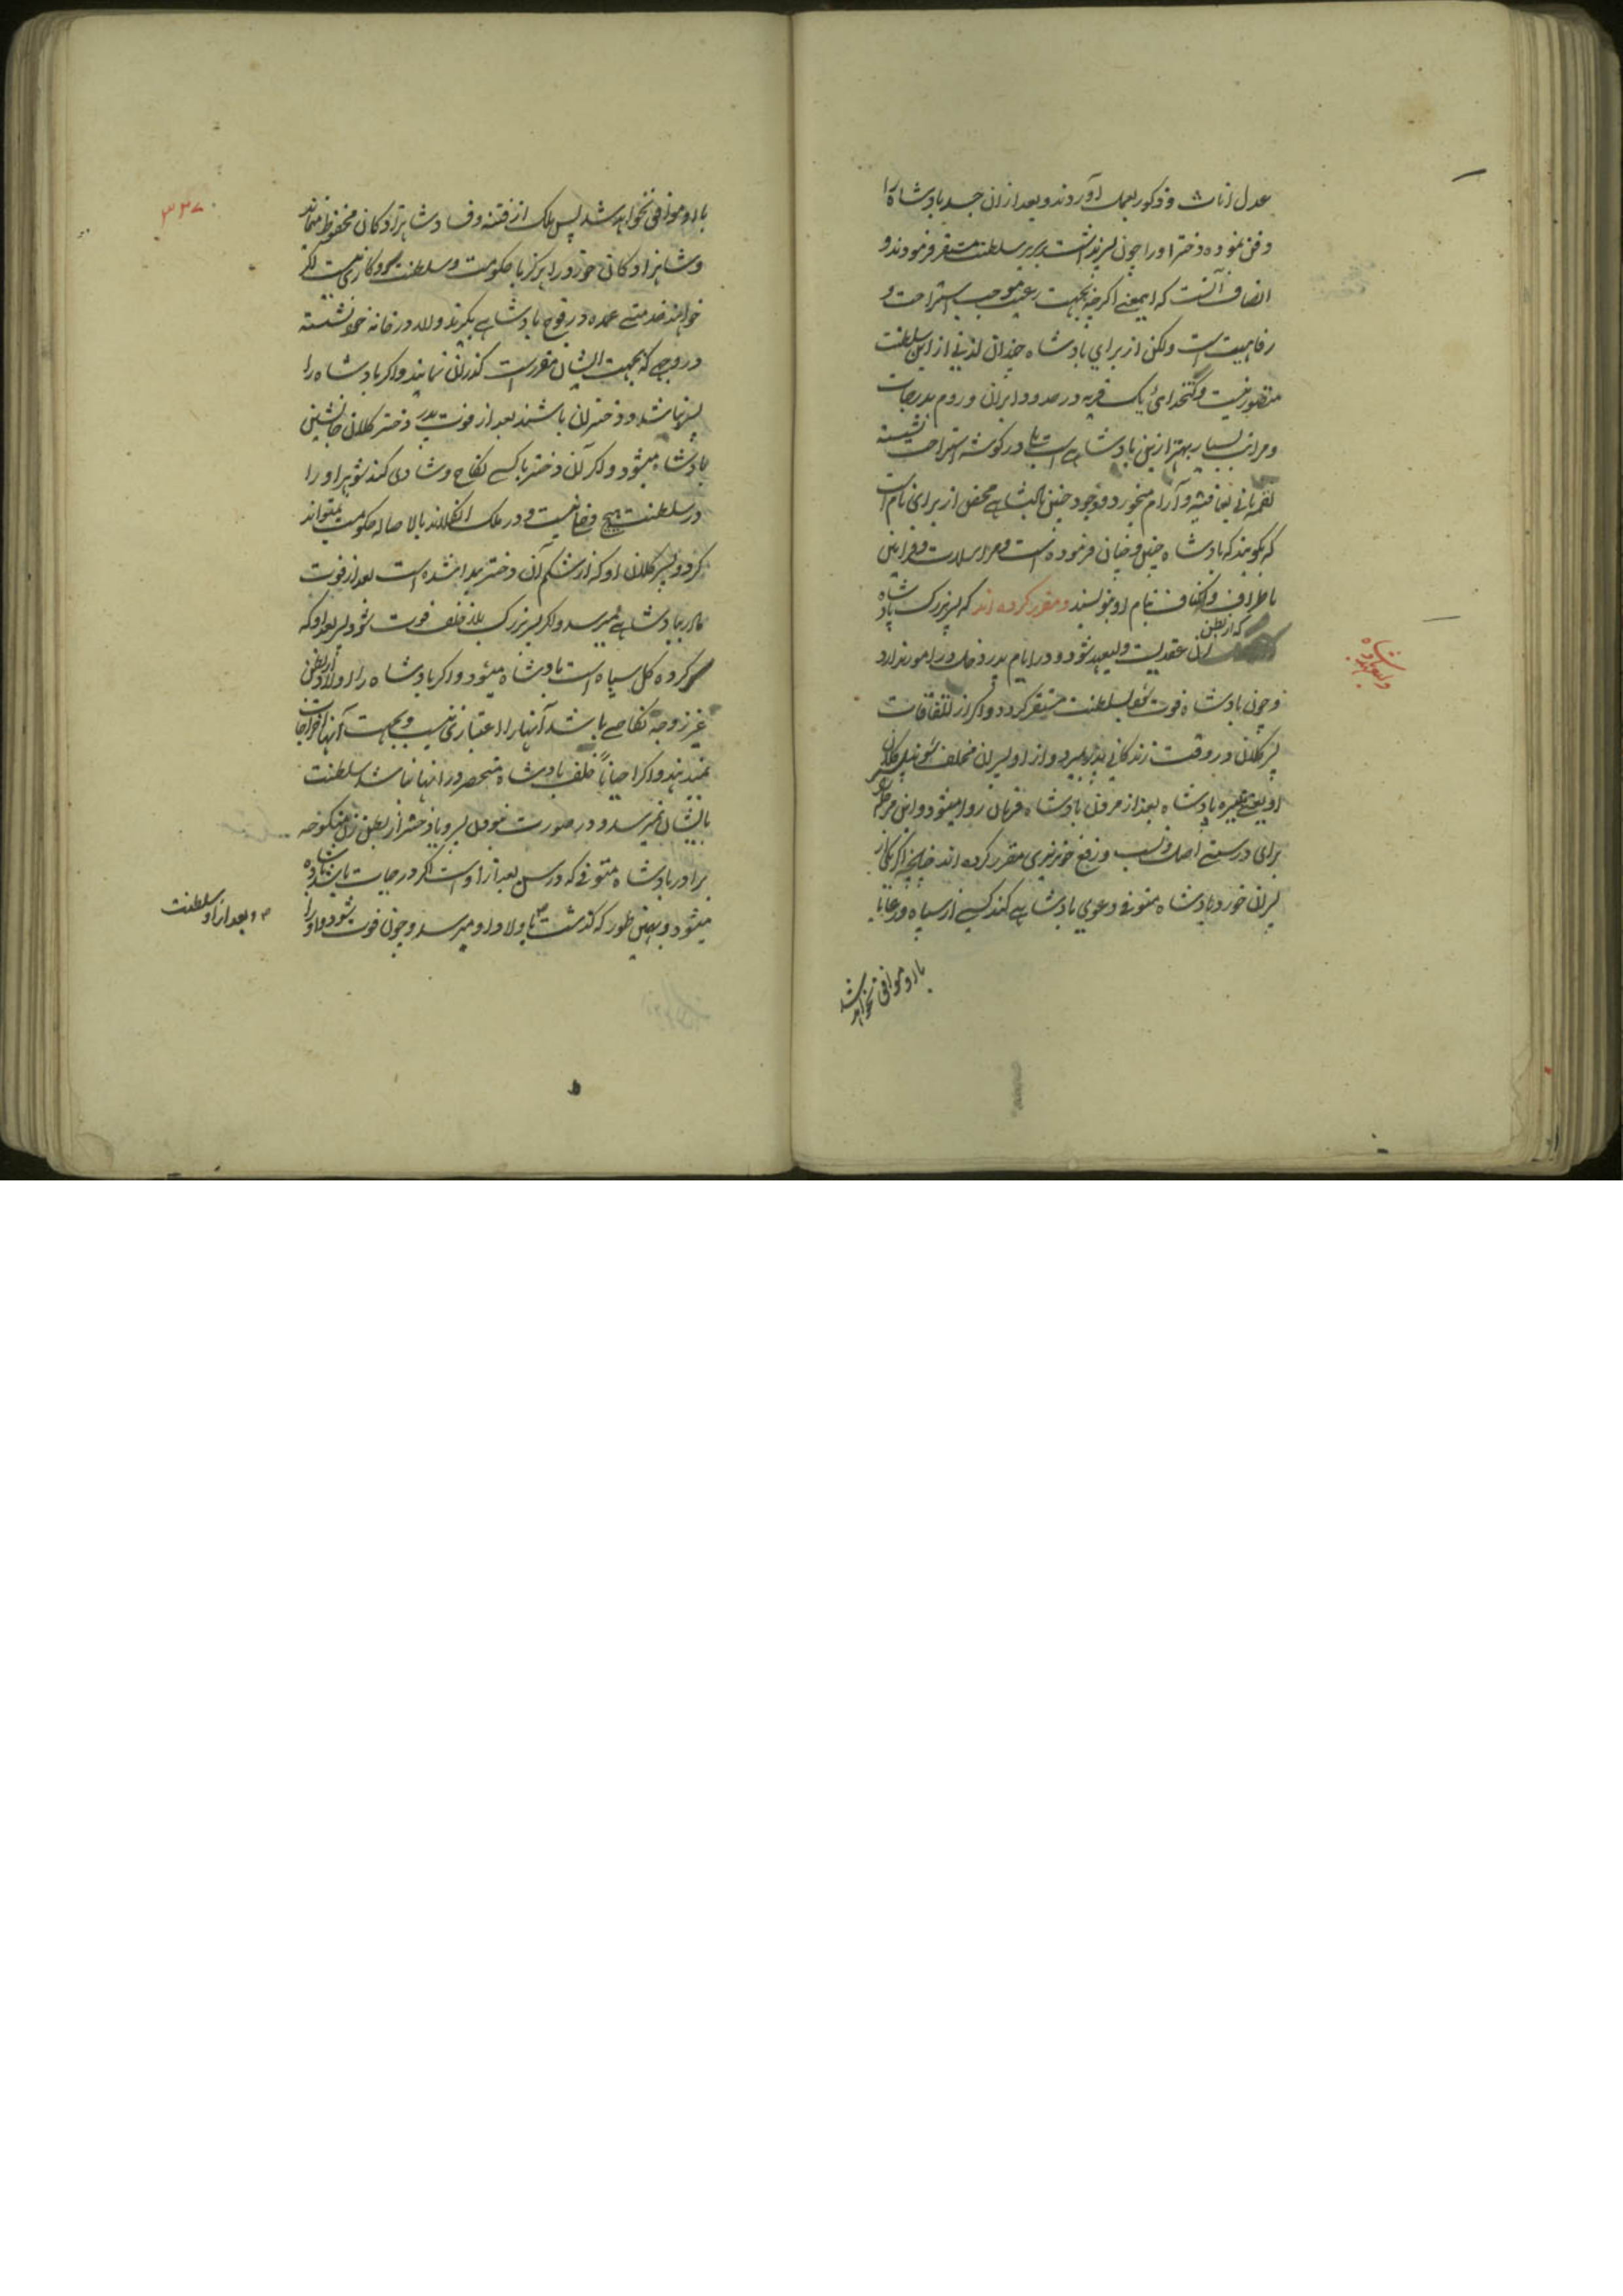 عدل اناث و ذکور بعمل آوردند و بعد از ان جسد پادشاه را
دفن نموده دختر اورا چون پسر نداشت بر سریر سلطنت مستقر فرمودند و
انصاف آنست که ایمعنے اگرچه بجهت رعیت موجب استراحت و
رفاهیت است ولکن از برای پادشاه چندان لذتی از این سلطنت
متصور نیست و کدخدائ یک قریه در حدود ایران و روم بدرجات
و مراتب بسیار بهتر ازین پادشاهے است بلے در کوشه استراحت نشسته
لقمه نانی بعافیت و آرام میخورد و وجود چنین پادشاهے محض از برای نام است
که بکویند که پادشاه چنین و چنان فرموده است و مراسلات و فرامین
باطراف و اکناف بنام او بنویسند و مقرر کرده اند که پسر بزرک پادشاه
که از بطن
زن عقدیست ولیعهد شود و در ایام پدر دخل در امور ندارد
و چون پادشاه فوت شود بسلطنت مستقر کردد و اکر از اتفاقات
پسر کلان در وقت زندکانی پدر بمیرد و از او پسران مخلف شوند پسر کلان
او یعنے نبیره پادشاه بعد از مردن پادشاه فرمان روا میشود و این مراتب
برای درستے اصل و نسب و رفع خونریزی مقرر کرده اند چنانچه اکر یکی از
پسران خورد پادشاه متوفی دعوی پادشاهے کند کسے از سپاه و رعایا
با او موافق نخواهد شد
ولیعهد پادشاه
۳۳۷
با او موافق نخواهد شد پس ملک از فتنه و فساد شاهزادکان محفوظ میماند
و شاهزادکان خورد را هرکز با حکومت و سلطنت سروکاری نیست اکر
خواهند خدمتے عمده در فوج پادشاهے بکیرند والا در خانه خود نشسته
در وجهے که بجهت ایشان مقرر است کذران نمایند و اکر پادشاه را
پسر نباشد و دختران باشند بعد از فوت پدر دختر کلان جانشین
پادشاه میشود و اکر آن دختر با کسے نکاح و شادی کند شوهر او را
در سلطنت هیچ دخل نیست و در ملک انکلاند بالاصاله حکومت نمیتواند
کرد و پسر کلان او که از شکم آن دختر پیدا شده است بعد از فوت
مادر بپادشاهے میرسد و اکر پسر بزرک بلا خلف فوت شود پسر بعد او که
سرکرده کل سپاه است پادشاه میشود و اکر پادشاه را اولاد از بطن
غیر زوجه نکاحے باشد آنها را اعتباری نیست و بجهت آنها اخراجات
نمیدهند و اکر احیاناً خلف پادشاه منحصر در انها باشد سلطنت
بایشان نمیرسد و در صورت نبودن پسر و یا دختر از بطن زن منکوحه
برادر پادشاه متوفی که در سن بعد از اوست اکر در حیات باشد پادشاه
میشود و بهمین طور که کذشت باولاد او میرسد و چون فوت شود و اورا
و بعد از او سلطنت